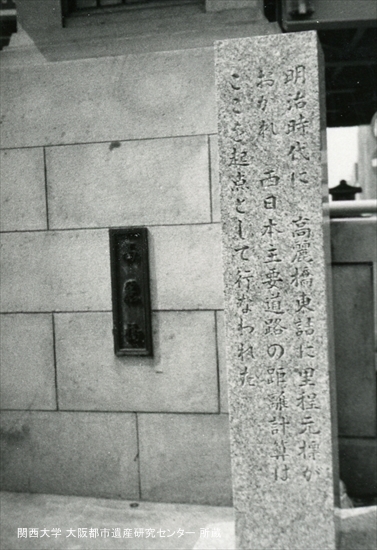 明治時代に 高麗橋東詰に里程元標が
おかれ 西日本主要道路の距離計算は
ここを起点として行なわれた
高麗橋
関西大学 大阪都市遺産研究センター 所蔵